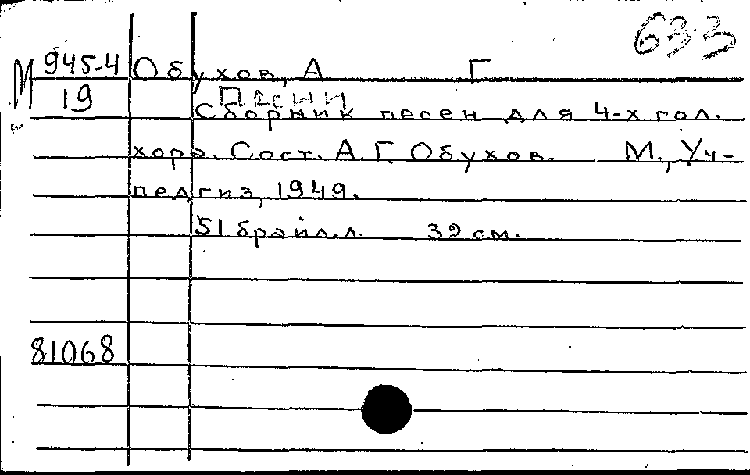 633
М 945-4 Обухов, А Г
19 Песни
Сборник песен для 4-х гол.
хора. Сост. А. Г. Обухов. М., Уч-
педгиз, 1949.
51 брайл. л. 39 см.
81068